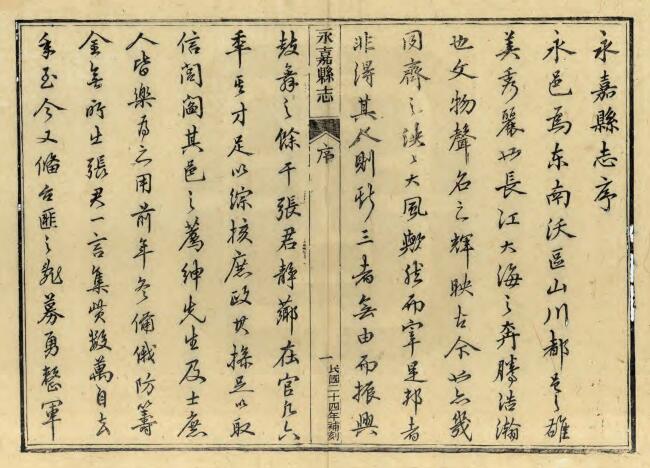 永嘉縣志序
永邑為東南沃區山川都邑之雄
美秀麗如長江大海之奔騰浩瀚
也文物聲名之輝映古今如點幾
同齊之泱泱大風歟然而宰是邦者
非得其人則斯三者無由而振興
永嘉縣志
序
一
民國二十四年補刻
鼓舞之餘干張君靜薌在官凡六
年其才足以綜核庶政其操足以取
信閭閻其邑之薦紳先生及士庶
人皆樂為之用前年冬備俄防籌
金無所出張君一言集貲數萬自去
年至今又備台匪之亂募勇整軍